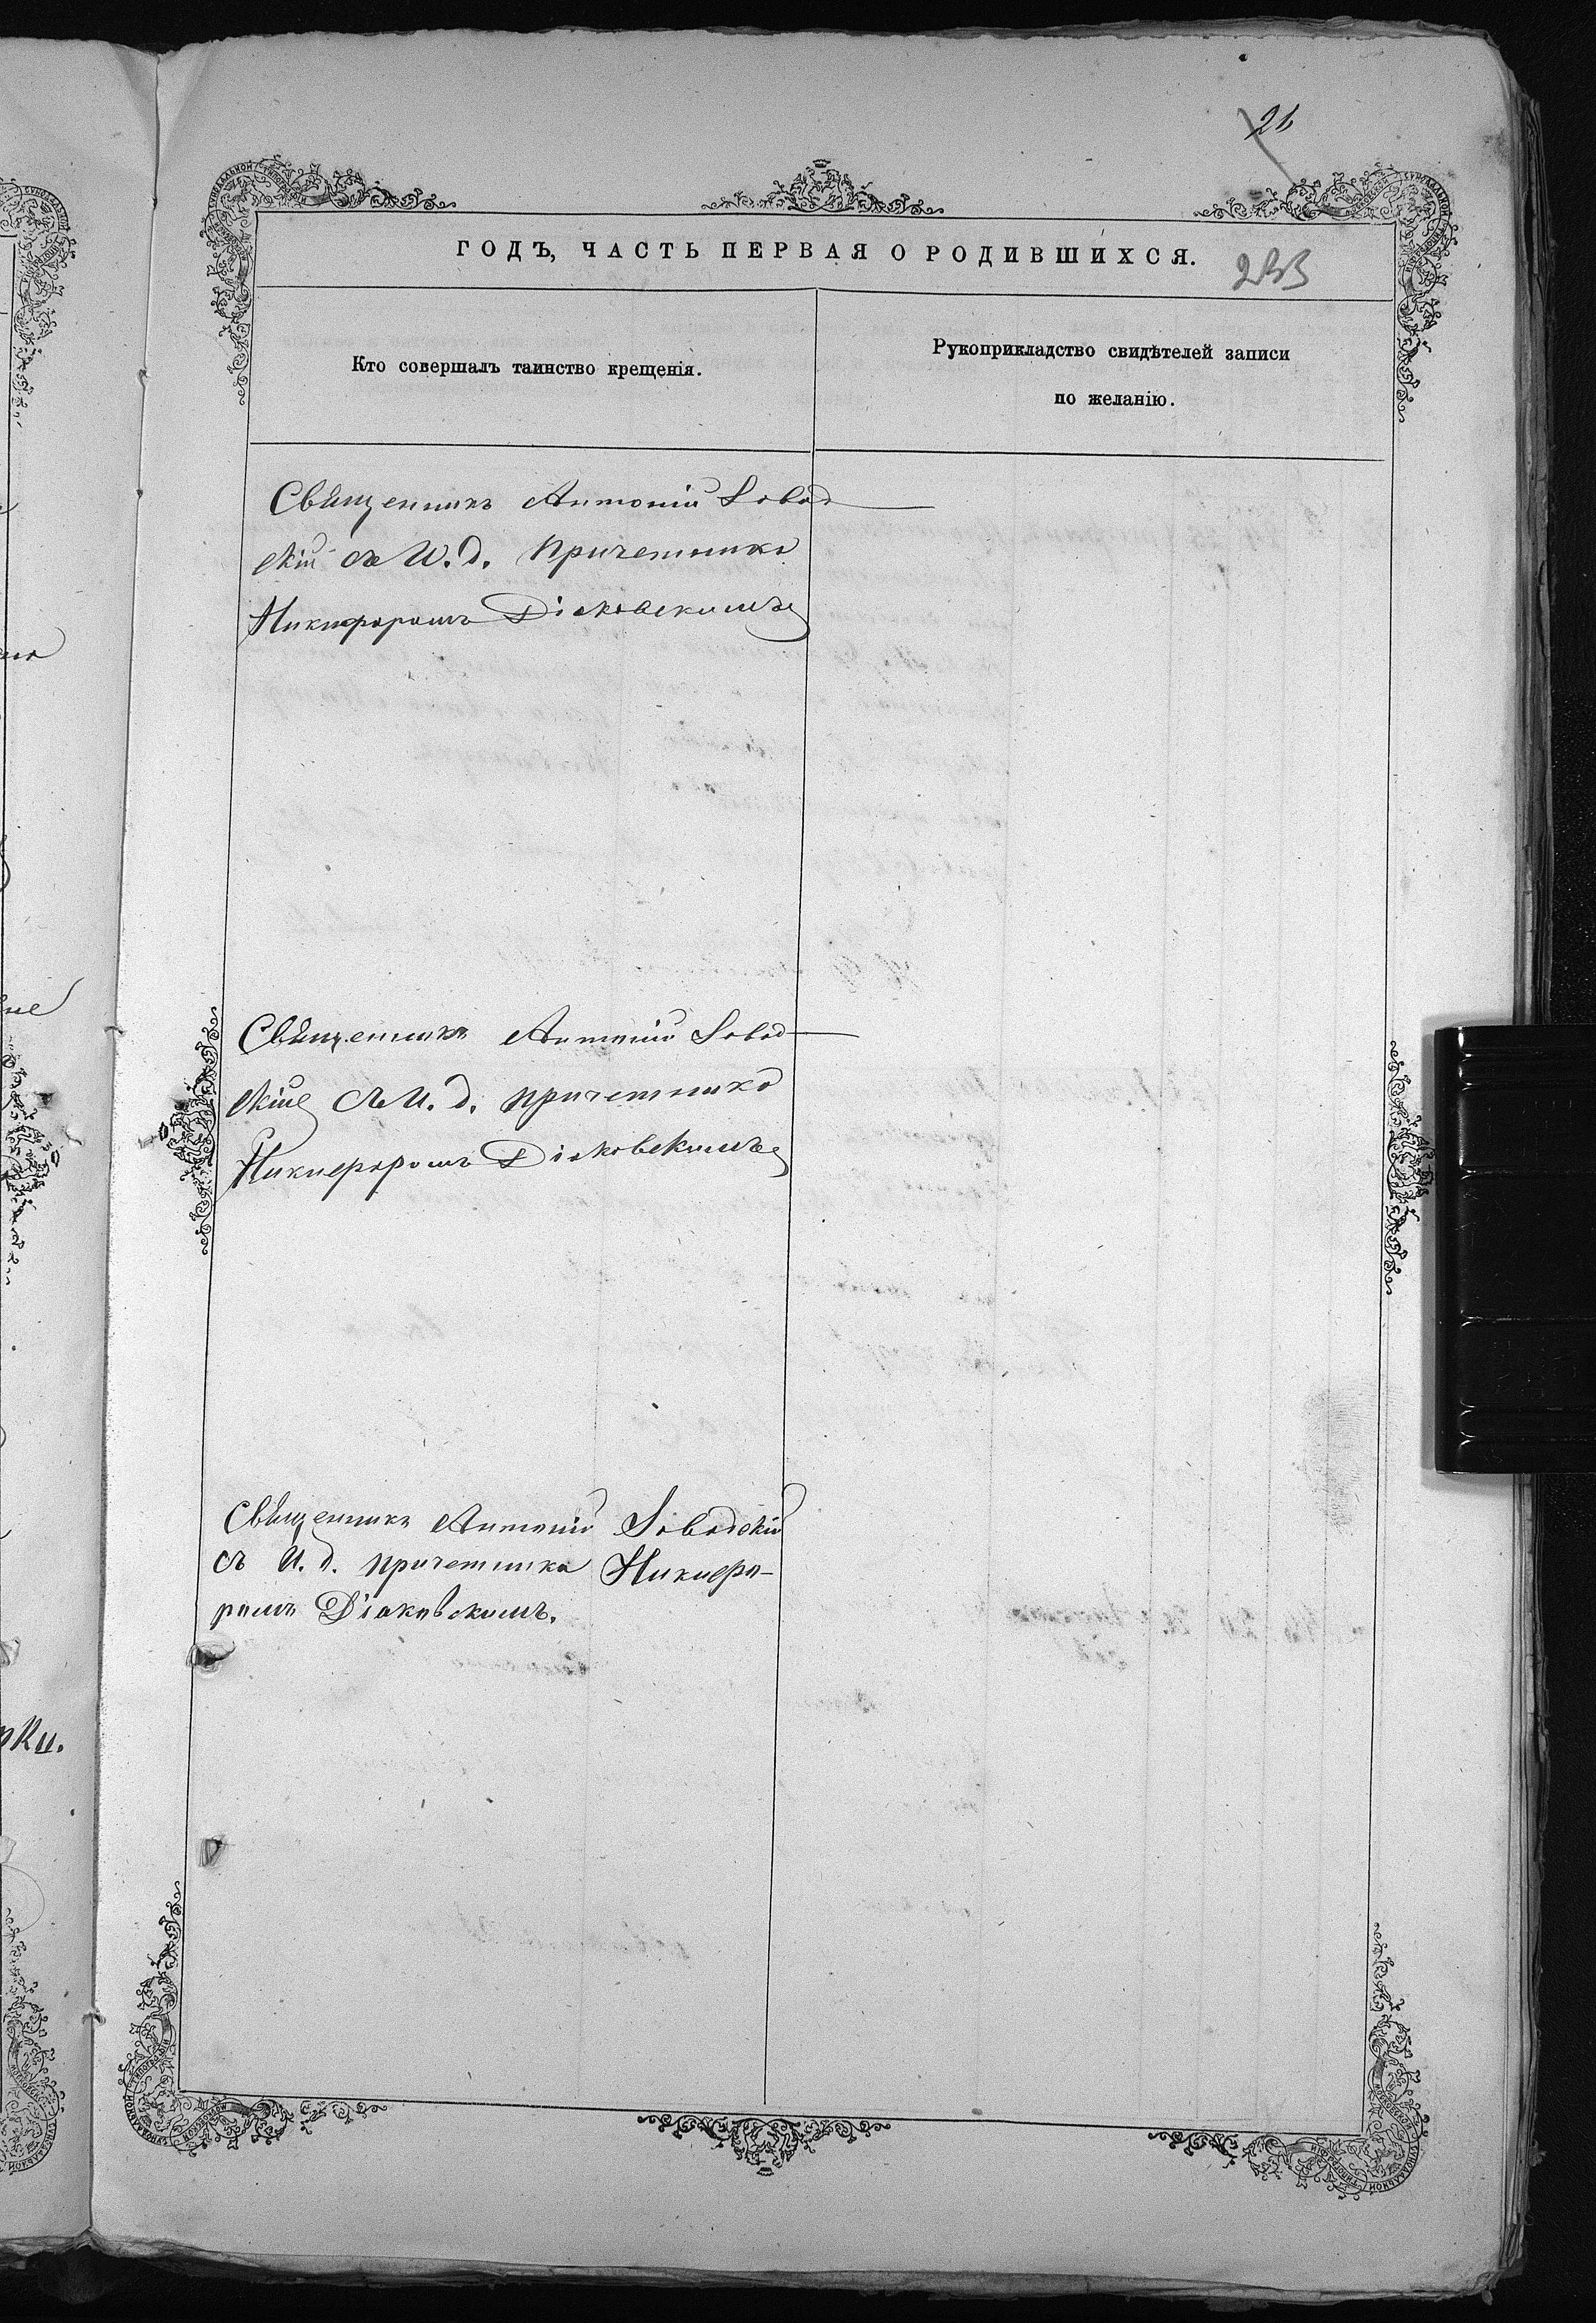 21
ГОДЪ, ЧАСТЬ ПЕРВАЯ О РОДИВШИХСЯ.
233
Кто совершалъ таинство крещенія.
Рукоприкладство свидѣтелей записи
по желанію.
Священникъ Антоній Лобод-
скій съ И. д. причетника
Никифоромъ Діаковскимъ
Священникъ Антоній Лобод-
скій съ И. д. причетника
Никифоромъ Діаковскимъ
Священникъ Антоній Лободскій
съ И. д. причетника Никифо-
ромъ Діаковскимъ.